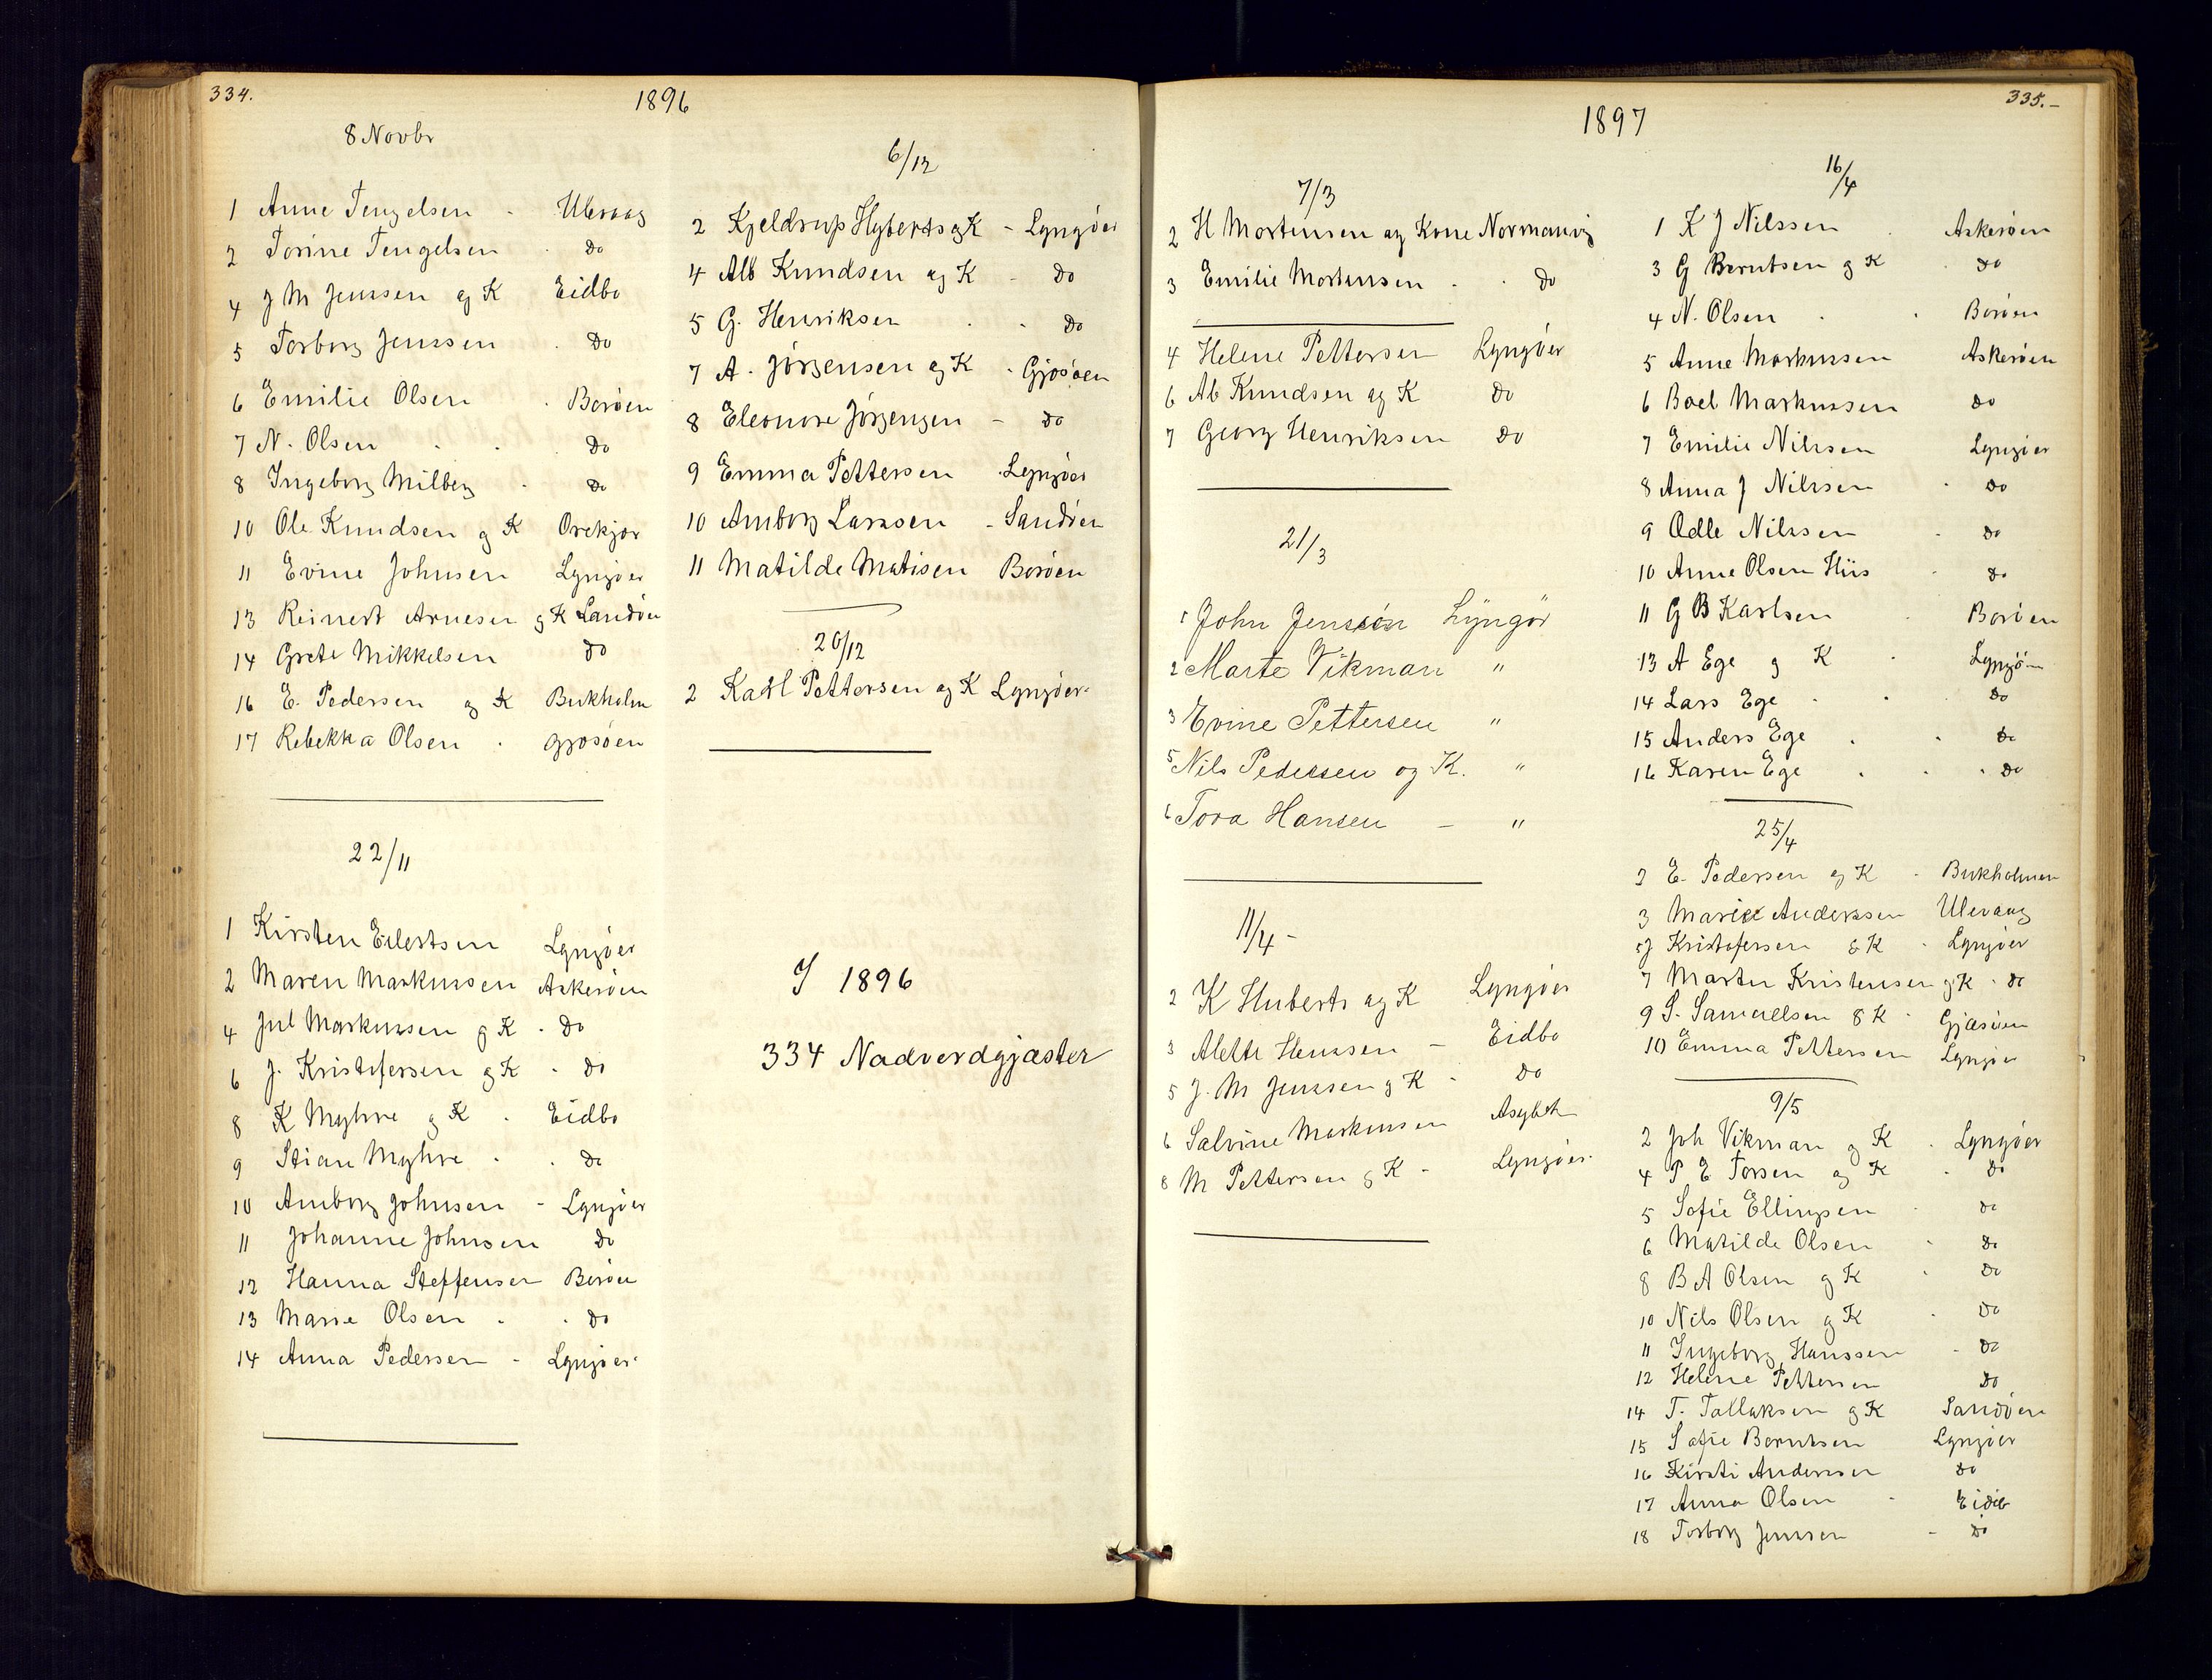 334.
1896
8 Novbr
1 Anne Tengelsen - Ulevaag
2 Torine Tengelsen - Do
4 J M Jenssen og K Eidbo
5 Torborg Jenssen - Do
6 Emilie Olsen - Borøen
7 N. Olsen - - Do
8 Ingeborg Milberg - Do
10 Ole Knudsen og K Orekjær
11 Evine Johnsen Lyngøer
13 Reinert Arnesen og K Sandøen
14 Grete Mikkelsen Do
16 E. Pedersen og K Bukholm
17 Rebekka Olsen - Gjøsøen
22/11
1 Kirsten Eilertsen Lyngøer
2 Maren Markussen Askerøen
4 Jul Markussen og K - Do
6 J. Kristofersen og K - Do
8 K Myhre og K - Eidbo
9 Stian Myhre - - Do
10 Amborg Johnsen - Lyngøer
11 Johanne Johnsen Do
12 Hanna Steffensen Borøen
13 Marie Olsen - - Do
14 Anna Pedersen - Lyngøer
6/12
2 Kjeldrup Hyberts og K - Lyngøer
4 Alb Knudsen og K - Do
5 G. Henriksen - - Do
7 A. Jørgensen og K - Gjøsøen
8 Eleonore Jørgensen - Do
9 Emma Pettersen - Lyngøer
10 Amborg Larssen - Sandøen
11 Matilde Matisen Borøen
20/12
2 Karl Pettersen og K Lyngøer
I 1896
334 Nadverdgjæster
335.-
1897
7/3
2 H Mortensen og Kone Normanvig
3 Emilie Mortensen - - Do
4 Helene Pettersen Lyngøer
6 Ab Knudsen og K Do
7 Georg Henriksen Do
21/3
1 John Jensen Lyngør
2 Marte Vikman "
3 Evine Pettersen "
5 Nils Pedersen og K. "
6 Tora Hansen - "
11/4 -
2 K Huberts og K Lyngøer
3 Alette Henssen - Eidbo
5 J. M Jenssen og K - Do
6 Salvine Markussen
8 M Pettersen og K - Lyngøer
16/4
1 K J Nilssen - Askerøen
3 G Berntsen og K - Do
4 N. Olsen - - Borøen
5 Anne Markussen Askerøen
6 Boel Markussen Do
7 Emilie Nilssen Lyngøer
8 Anna J Nilssen - Do
9 Odle Nilssen - Do
10 Anne Olsen Hiis - Do
11 G B Karlsen - Borøen
13 A Ege og K - Lyngøer
14 Lars Ege - - Do
15 Anders Ege - - Do
16 Karen Ege - - - Do
25/4
2 E. Pedersen og K - Bukholmen
3 Marie Anderssen Ulevaag
5 J Kristofersen & K - Lyngøer
7 Martin Kristensen og K - Do
9 S. Samuelsen & K - Gjæsøen
10 Emma Pettersen Lyngøer
9/5
2 Joh Vikman og K - Lyngøer
4 P E Torsen og K - Do
5 Sofie Ellingsen - Do
6 Matilde Olsen - Do
8 B A Olsen og K - Do
10 Nils Olsen og K - Do
11 Ingeborg Hanssen - Do
12 Helene Pettersen Do
14 T. Tallaksen og K Sandøen
15 Sofie Berntsen Lyngøer
16 Kirsti Anderssen Do
17 Anna Olsen - Eidb
18 Torborg Jenssen - Do